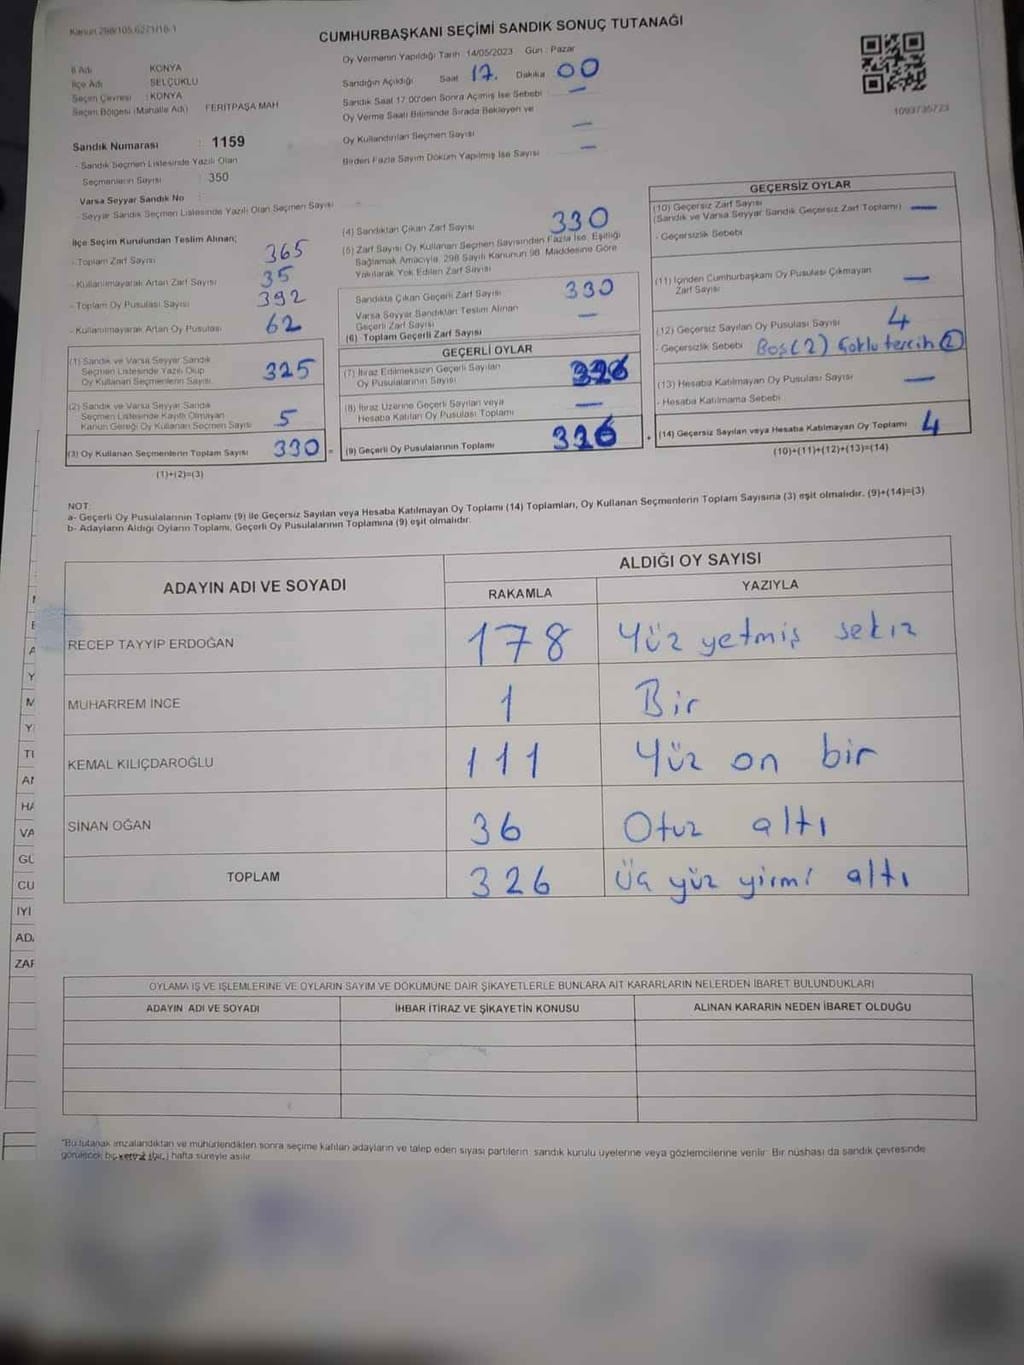 Kanun 298/105,6271/18-1
CUMHURBAŞKANI SEÇİMİ SANDIK SONUÇ TUTANAĞI
İl Adı KONYA
İlçe Adı SELÇUKLU
Seçim Çevresi : KONYA
Seçim Bölgesi (Mahalle Adı) FERİTPAŞA MAH
Sandık Numarası : 1159
- Sandık Seçmen Listesinde Yazılı Olan
Seçmenlerin Sayısı : 350
Varsa Seyyar Sandık No :
- Seyyar Sandık Seçmen Listesinde Yazılı Olan Seçmen Sayısı
Oy Vermenin Yapıldığı Tarih : 14/05/2023 Gün : Pazar
Sandığın Açıldığı Saat 17. Dakika 00
Sandık Saat 17.00'den Sonra Açılmış İse Sebebi —
Oy Verme Saati Bitiminde Sırada Bekleyen ve
Oy Kullandırılan Seçmen Sayısı —
Birden Fazla Sayım Döküm Yapılmış İse Sayısı —
1093735723
İlçe Seçim Kurulundan Teslim Alınan;
- Toplam Zarf Sayısı 365
- Kullanılmayarak Artan Zarf Sayısı 35
- Toplam Oy Pusulası Sayısı 392
- Kullanılmayarak Artan Oy Pusulası 62
(1) Sandık ve Varsa Seyyar Sandık
Seçmen Listesinde Yazılı Olup
Oy Kullanan Seçmenlerin Sayısı 325
(2) Sandık ve Varsa Seyyar Sandık
Seçmen Listesinde Kayıtlı Olmayan
Kanun Gereği Oy Kullanan Seçmen Sayısı 5
(3) Oy Kullanan Seçmenlerin Toplam Sayısı 330 =
(1)+(2)=(3)
(4) Sandıktan Çıkan Zarf Sayısı 330
(5) Zarf Sayısı Oy Kullanan Seçmen Sayısından Fazla İse, Eşitliği
Sağlamak Amacıyla, 298 Sayılı Kanunun 98. Maddesine Göre
Yakılarak Yok Edilen Zarf Sayısı
Sandıkta Çıkan Geçerli Zarf Sayısı 330
Varsa Seyyar Sandıktan Teslim Alınan
Geçerli Zarf Sayısı —
(6) -Toplam Geçerli Zarf Sayısı
GEÇERLİ OYLAR
(7) İtiraz Edilmeksizin Geçerli Sayılan
Oy Pusulalarının Sayısı 326
(8) İtiraz Üzerine Geçerli Sayılan veya
Hesaba Katılan Oy Pusulası Toplamı —
(9) Geçerli Oy Pusulalarının Toplamı 326 +
GEÇERSİZ OYLAR
(10) Geçersiz Zarf Sayısı
(Sandık ve Varsa Seyyar Sandık Geçersiz Zarf Toplamı) —
- Geçersizlik Sebebi
(11) İçinden Cumhurbaşkanı Oy Pusulası Çıkmayan
Zarf Sayısı —
(12) Geçersiz Sayılan Oy Pusulası Sayısı 4
- Geçersizlik Sebebi Boş(2) Çoklu tercih (2)
(13) Hesaba Katılmayan Oy Pusulası Sayısı —
- Hesaba Katılmama Sebebi
(14) Geçersiz Sayılan veya Hesaba Katılmayan Oy Toplamı 4
(10)+(11)+(12)+(13)=(14)
NOT:
a- Geçerli Oy Pusulalarının Toplamı (9) ile Geçersiz Sayılan veya Hesaba Katılmayan Oy Toplamı (14) Toplamları, Oy Kullanan Seçmenlerin Toplam Sayısına (3) eşit olmalıdır. (9)+(14)=(3)
b- Adayların Aldığı Oyların Toplamı, Geçerli Oy Pusulalarının Toplamına (9) eşit olmalıdır.
ADAYIN ADI VE SOYADI
ALDIĞI OY SAYISI
RAKAMLA YAZIYLA
RECEP TAYYİP ERDOĞAN 178 Yüz yetmiş sekiz
MUHARREM İNCE 1 Bir
KEMAL KILIÇDAROĞLU 111 Yüz on bir
SİNAN OĞAN 36 Otuz altı
TOPLAM 326 Üç yüz yirmi altı
OYLAMA İŞ VE İŞLEMLERİNE VE OYLARIN SAYIM VE DÖKÜMÜNE DAİR ŞİKAYETLERLE BUNLARA AİT KARARLARIN NELERDEN İBARET BULUNDUKLARI
ADAYIN ADI VE SOYADI İHBAR İTİRAZ VE ŞİKAYETİN KONUSU ALINAN KARARIN NEDEN İBARET OLDUĞU
*Bu tutanak imzalandıktan ve mühürlendikten sonra seçime katılan adayların ve talep eden siyasi partilerin sandık kurulu üyelerine veya gözlemcilerine verilir. Bir nüshası da sandık çevresinde
görülecek bir yere 1 (bir) hafta süreyle asılır.
M
Y
TI
AI
HA
VA
GÜ
CU
İYİ
AD
ZAF